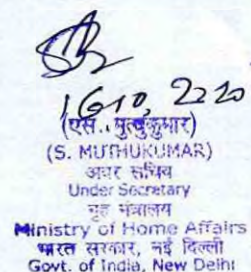 16.10.2020
(एस. मुत्तुकुमार)
(S. MUTHUKUMAR)
अवर सचिव
Under Secretary
गृह मंत्रालय
Ministry of Home Affairs
भारत सरकार, नई दिल्ली
Govt. of India, New Delhi